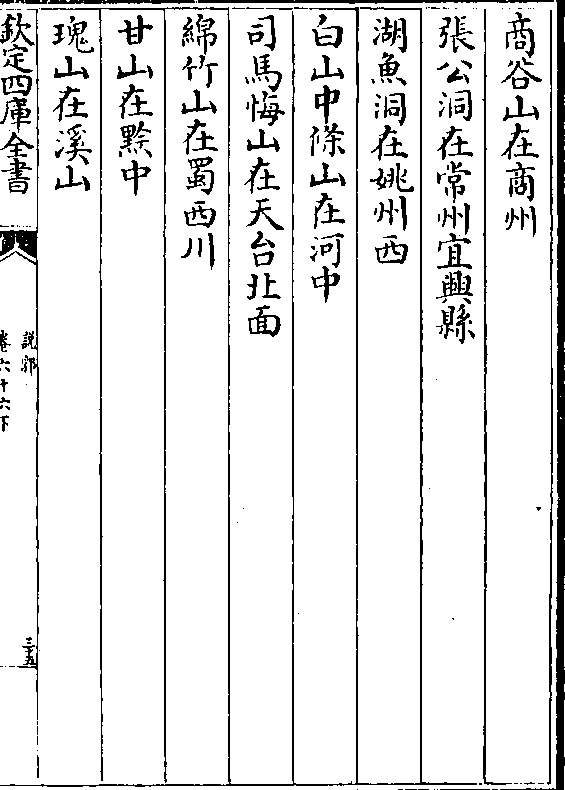 商谷山在商州
張公洞在常州宜興縣
湖魚洞在姚州西
白山中條山在河中
司馬悔山在天台北面
綿竹山在蜀西川
甘山在黔中
瑰山在溪山
欽定四庫全書
說郛
卷六十六下
三十五